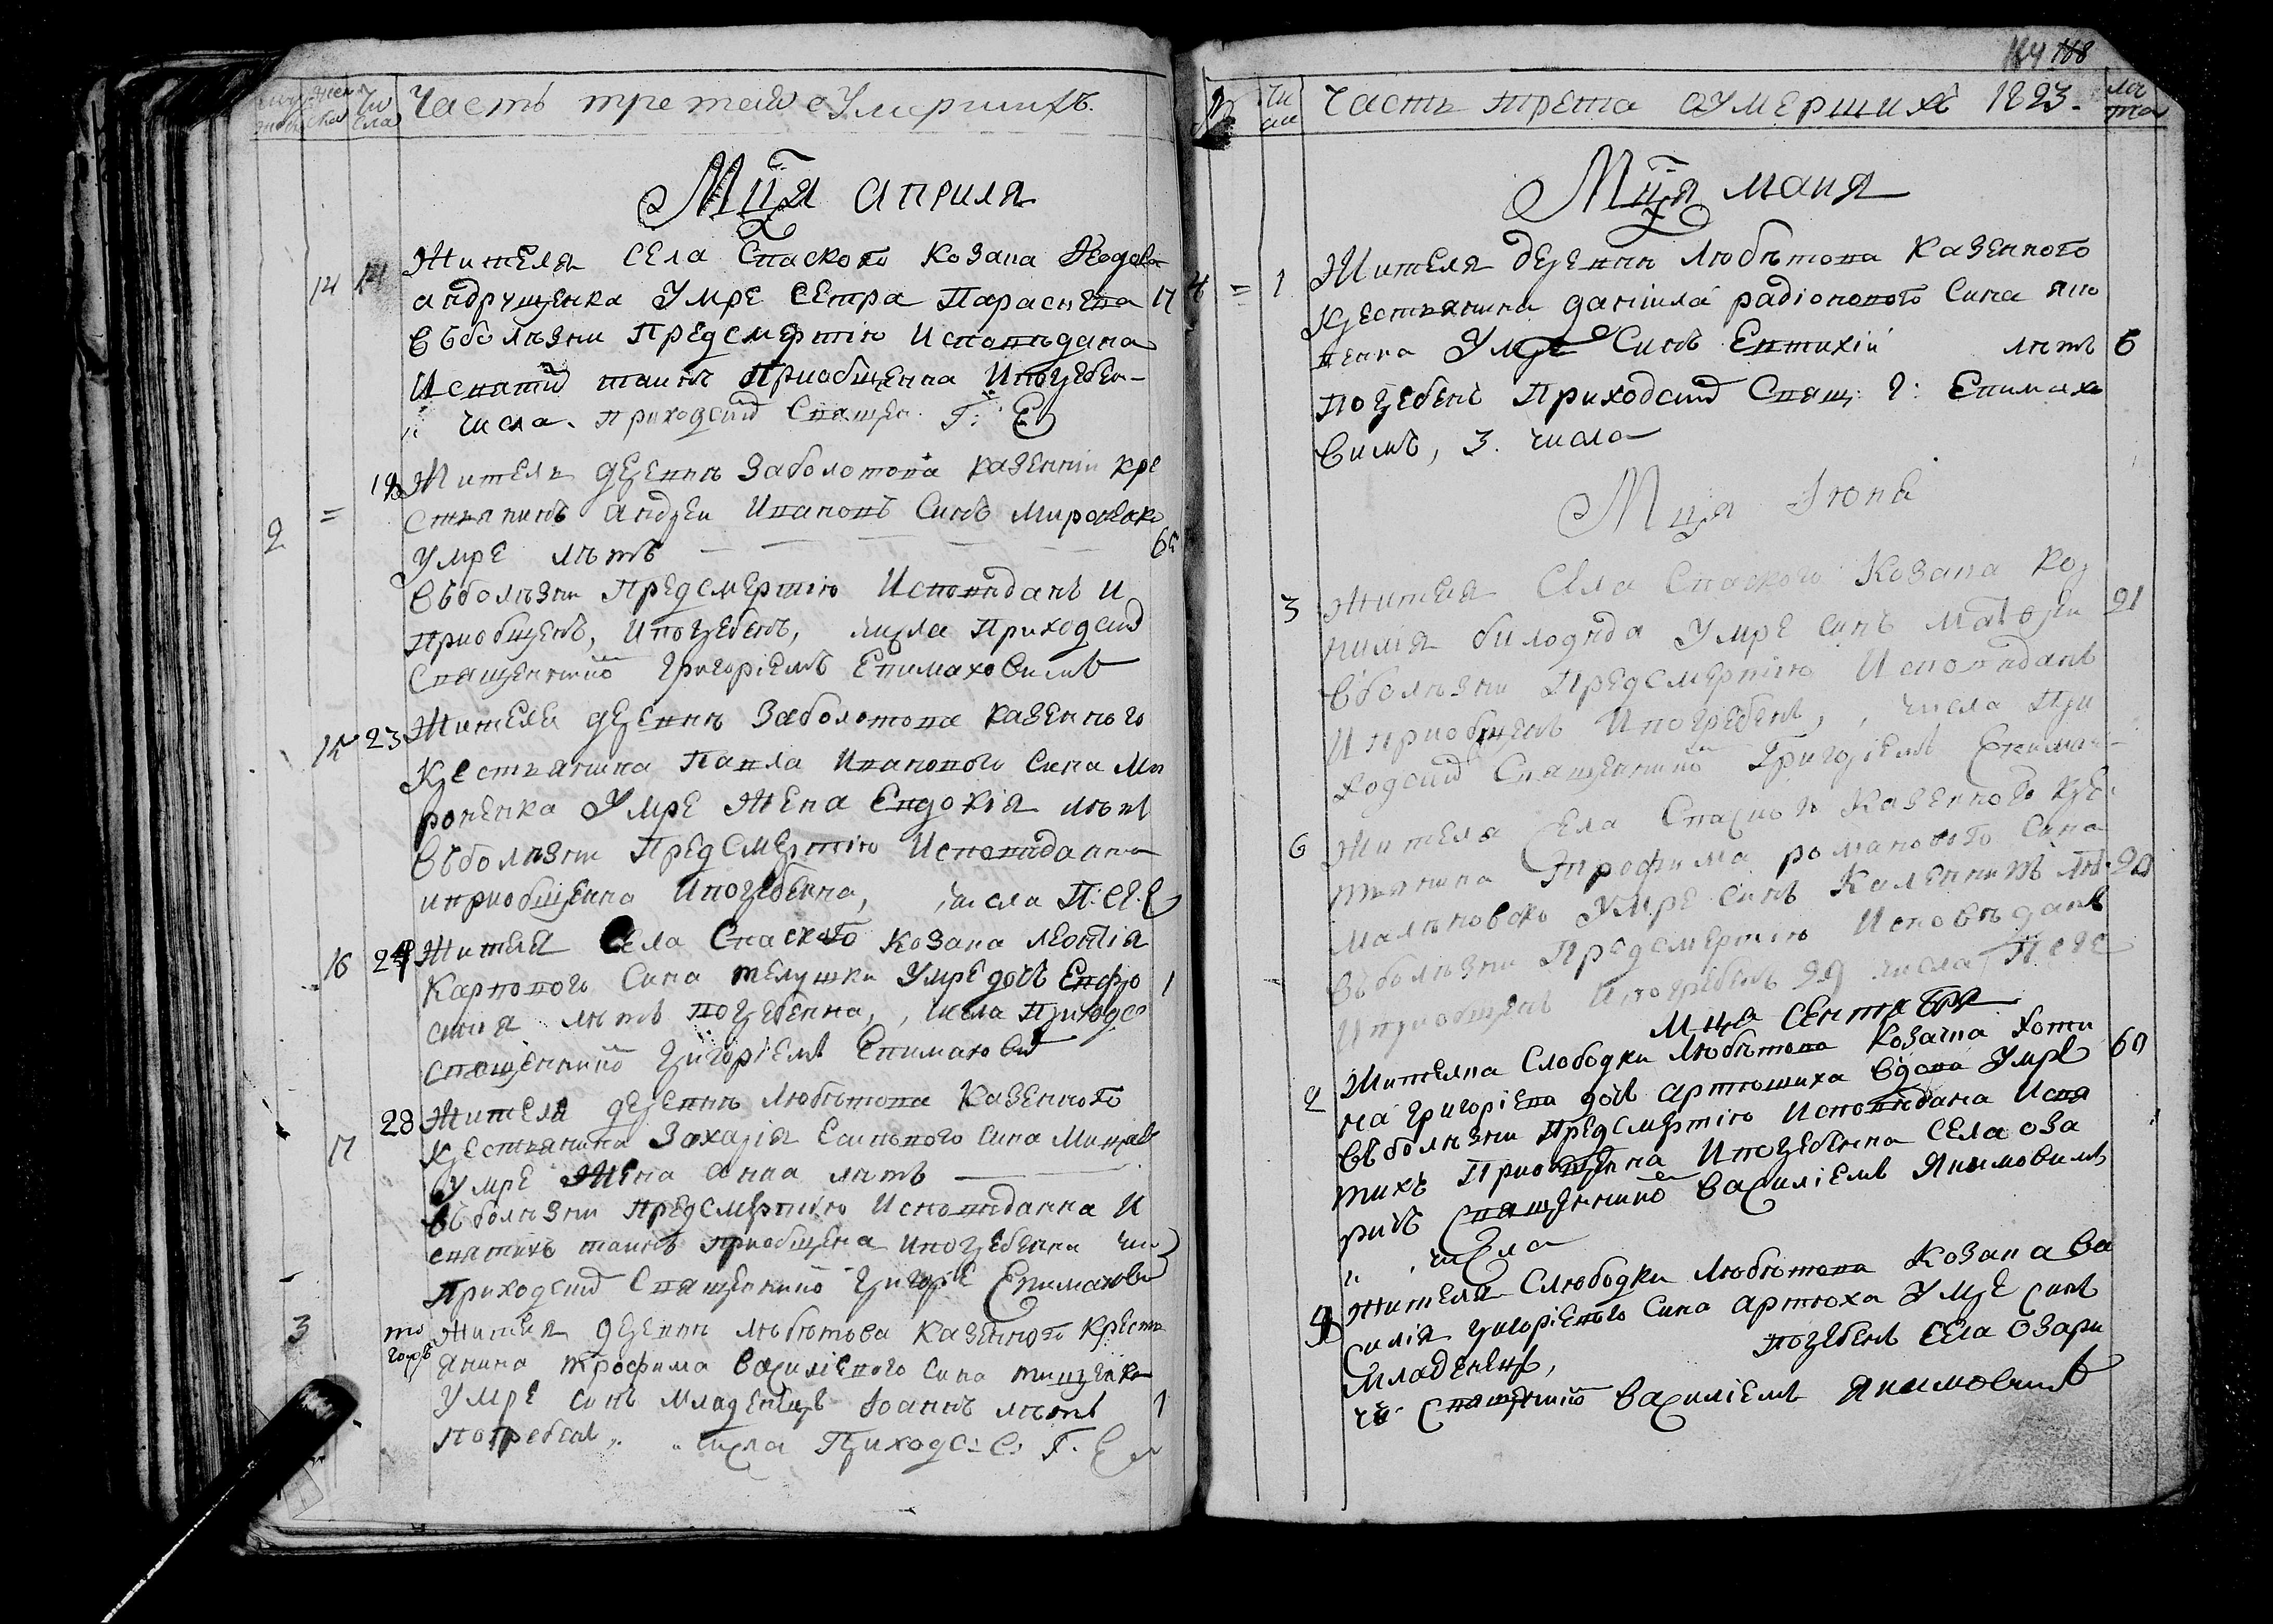 Часть третая о Умершихъ.
Мца априля
14 14 Жителя села Спаского козака Феодора
андрущенка Умре сестра Параскева 17
въболѣзни Предсмертію Исповѣдана
И святих таинъ Приобщенна Ипогребен-
" числа. приходским Священ. Г: Е
19 Житель деревнѣ Заболотова казенній кре
2 = стьянинъ андреи Ивановъ Синъ Мироненко
умре лѣтъ 65
въболѣзни Предсмертію Исповѣданъ и
приобщенъ, ипогребенъ, числа Приходским
Священникомъ григоріемъ Епимаховимъ
15 23 Жителя деревнѣ Заболотова казенного
крестьянина Павла Иванового Сина Ми
роненка Умре Жена Евдокія лѣтъ
въболѣзни Предсмертію Исповѣданна
иприобщенна ипогребенна, числа П. С. Г. Е
16 24 Жителя Села Спаского козака леонтія
Карпового Сина телушки Умре дочъ Евфро 1
синия лѣтъ погребенна, числа Приходс
священникомъ григоріемъ Епимахови
17 28 Жителя деревнѣ Любитова Казенного
крестьянина Захарія Есипового сина
умре Жена анна лѣтъ
въболѣзни предсмертію Исповѣданна И
святихъ таинъ приобщена ипогребенна чи
приходским Священником григоріе Епимахови
3 то Жителя деревнѣ любитова казенного крестъ
гожъ янина трофима василіевого сина тищенка
умре синъ Младенецъ Іоаннъ лѣтъ 1
погребен, числа Приходс: С: Г. Е
184 188
Чи Часть трета оУмершихъ 1823. лѣ
сла та
Мца маия
4 = 1 Жителя деревнѣ Любитова Казенного
крестьянина даніила радіонового Сина яко
венка Умре Синъ Евтихій лѣтъ 6
погребенъ Приходским Свящ: г: Епимахо
вимъ, 3. числа
Мця Іюня
3 жителя Села Спаского козака кор 21
нилія билодѣда Умре синъ
вболѣзни Предсмертію Исповѣданъ
Иприобщенъ Ипогребенъ, числа При
ходским Священникомъ Григоріемъ Епимах-
6 Жителя Села Спаского Казенного кре-
тянина трофима романового Сина
Умре синъ лѣ. 20
въболѣзни Предсмертію Исповѣданъ
Иприобщенъ Ипогребенъ числа П С Г Е
Мца Сентября
2 Жителка Слободки Любитова Козачка 60
на григоріева дочъ артюшиха вдова Умре
въболѣзни предсмертію Исповѣдана Исвя
тихъ Приобщена Ипогребенна села оза
ричъ Священникомъ василіемъ Якимовимъ
" числа
9 жителя Слободки Любитова козака Ва
силія григоріевого Сина артюха Умре синъ
младенецъ, погребенъ села Озари
чъ- Священникомъ василіемъ Якимовимъ